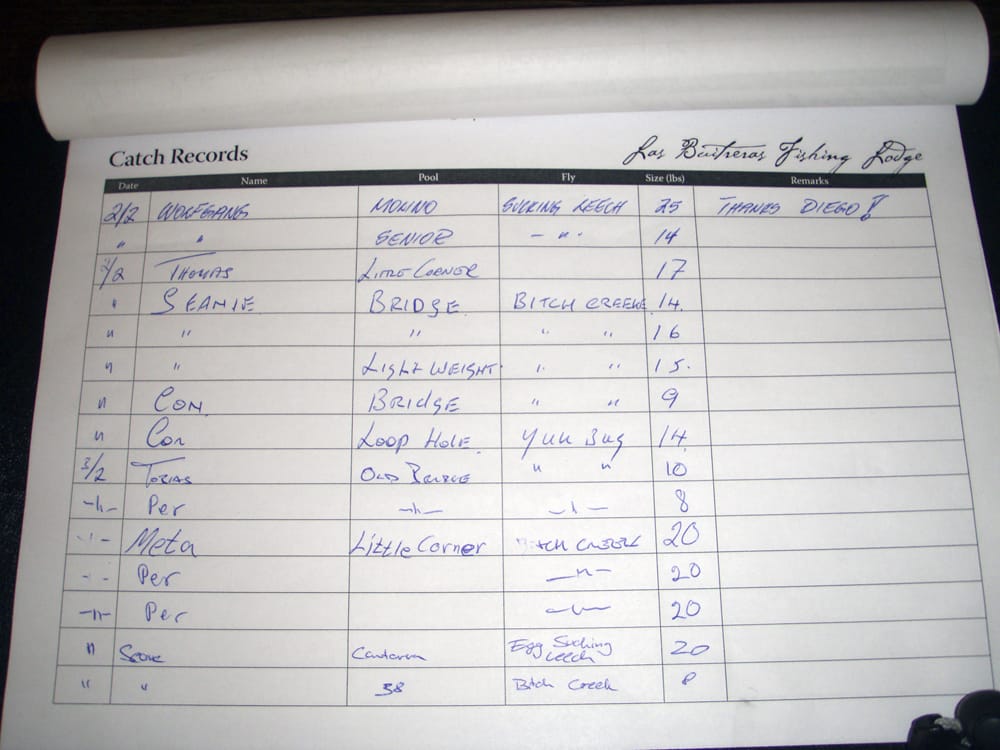 Catch Records Las Buitreras Fishing Lodge
Date Name Pool Fly Size (lbs) Remarks
2/2 WOLFGANG MOLINO SUCKING LEECH 25 THANKS DIEGO!!
" " SENIOR - " - 14
2/2 THOMAS LITTLE CORNER 17
" SEANIE BRIDGE BITCH CREEKE 14.
" " " " " 16
" " LIGHTWEIGHT " " 15.
" CON. BRIDGE " " 9
" Con LOOP HOLE. YUK BUG 14.
3/2 TOBIAS OLD BRIDGE " " 10
-"- Per -"- -"- 8
-"- Meta Little Corner BITCH CREEK 20
-"- Per -"- 20
-"- Per -"- 20
" Egg Sucking Leech 20
" " 38 Bitch Creek 8